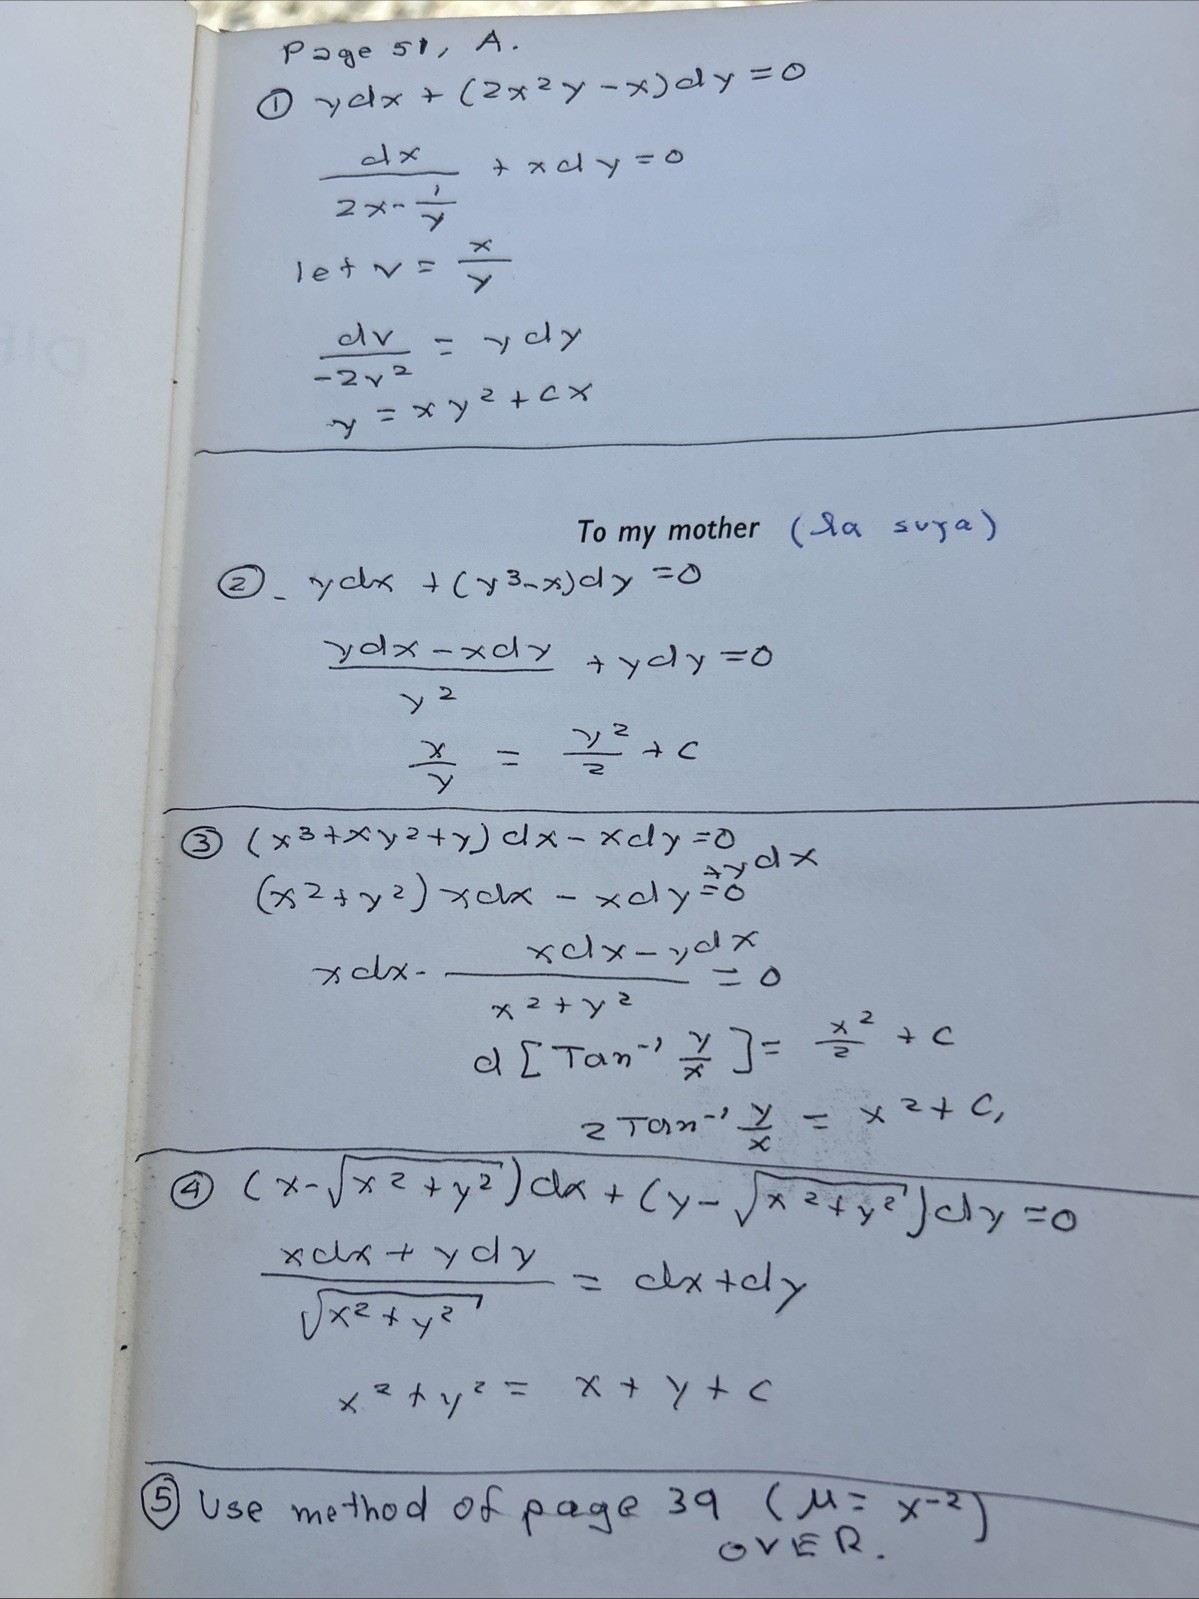 Page 51, A.
① ydx + (2x²y - x)dy = 0
dx / (2x - 1/y) + xdy = 0
let v = x/y
dv / -2v² = ydy
y = xy² + cx
To my mother
② - ydx + (y³-x)dy = 0
(ydx - xdy) / y² + ydy = 0
x/y = y²/2 + c
③ (x³+xy²+y)dx - xdy = 0
+ydx
(x²+y²)xdx - xdy = 0
xdx - (xdx - ydx) / (x² + y²) = 0
d[Tan⁻¹ y/x] = x²/2 + c
2Tan⁻¹ y/x = x² + C₁
④ (x-√(x²+y²))dx + (y-√(x²+y²))dy = 0
(xdx + ydy) / √(x²+y²) = dx+dy
x² + y² = x + y + c
⑤ Use method of page 39 (μ = x⁻²)
OVER.